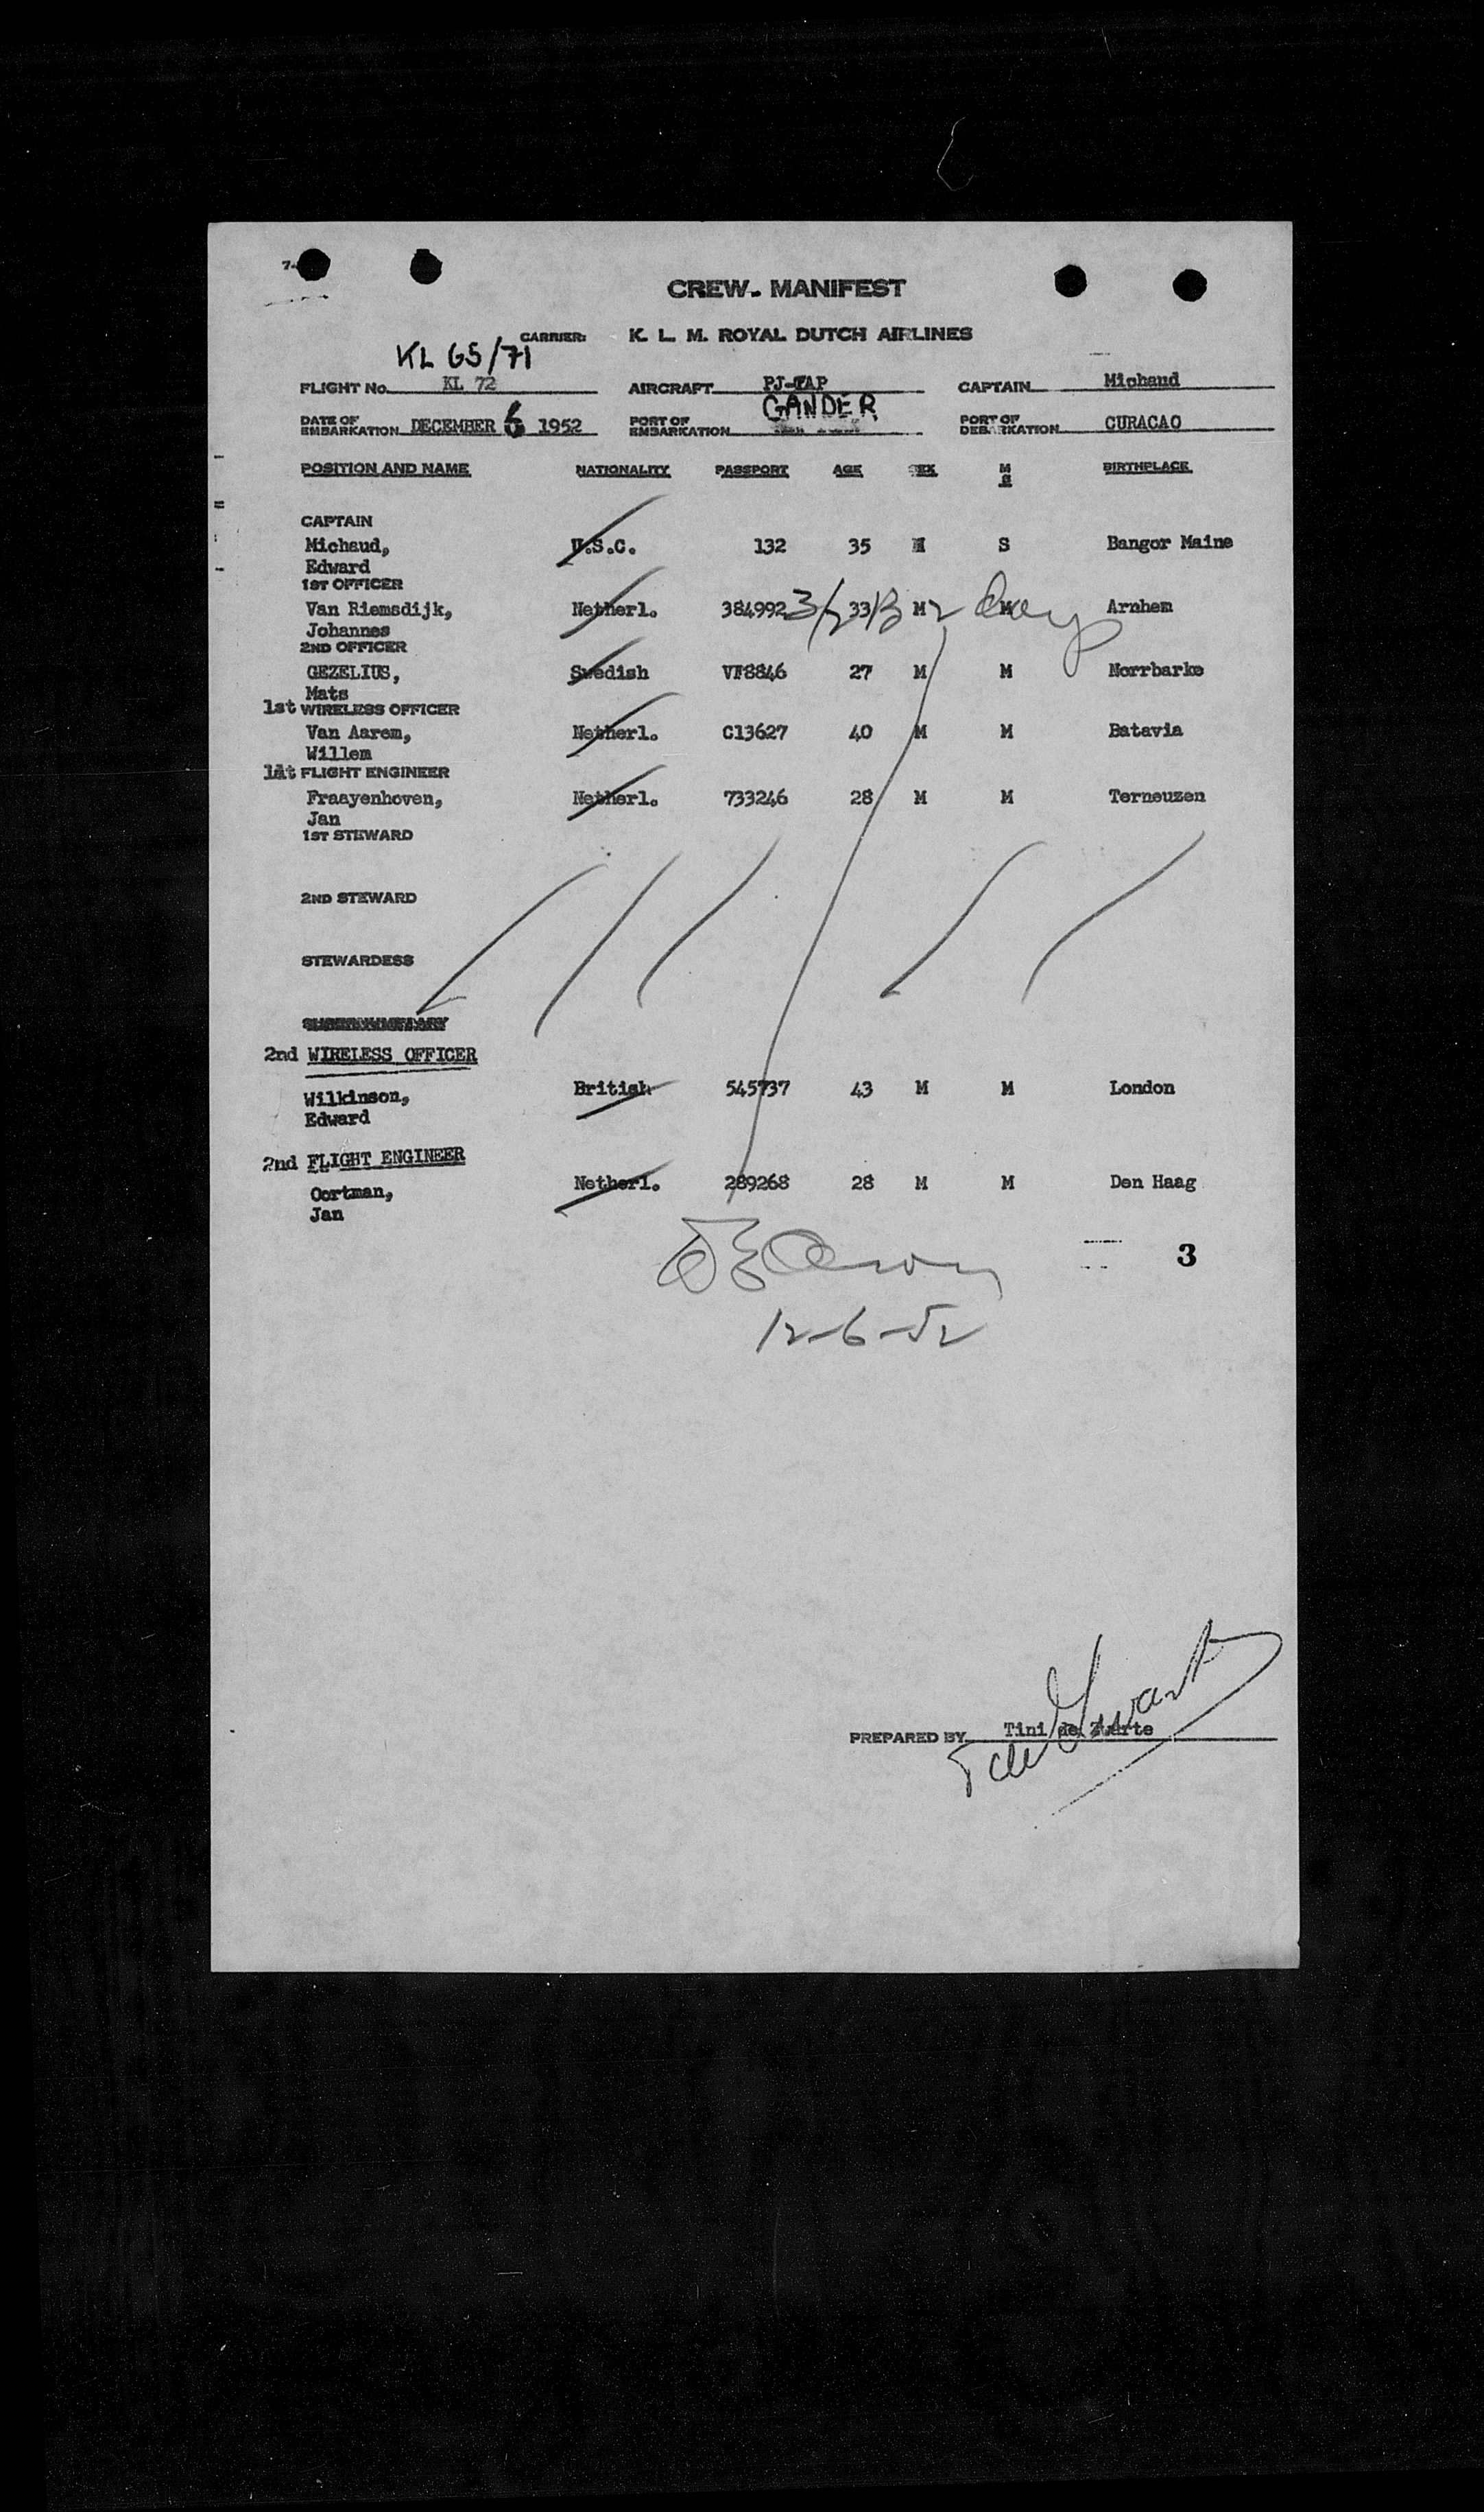 7-
CREW. MANIFEST
CARRIER: K. L. M. ROYAL DUTCH AIRLINES
KL 65/71
FLIGHT No. KL 72 AIRCRAFT PJ-TAP CAPTAIN Michaud
GANDER
DATE OF EMBARKATION DECEMBER 6 1952 PORT OF EMBARKATION PORT OF DEBARKATION CURACAO
POSITION AND NAME NATIONALITY PASSPORT AGE SEX M S BIRTHPLACE
CAPTAIN
Michaud, U.S.C. 132 35 M S Bangor Maine
Edward
1ST OFFICER
Van Riemsdijk, Netherl. 384992 33 M M Arnhem
Johannes
2ND OFFICER
GEZELIUS, Swedish VF8846 27 M M Norrbarke
Mats
1st WIRELESS OFFICER
Van Aarem, Netherl. C13627 40 M M Batavia
Willem
1st FLIGHT ENGINEER
Fraayenhoven, Netherl. 733246 28 M M Terneuzen
Jan
1ST STEWARD
2ND STEWARD
STEWARDESS
2nd WIRELESS OFFICER
Wilkinson, British 545737 43 M M London
Edward
2nd FLIGHT ENGINEER
Oortman, Netherl. 289268 28 M M Den Haag
Jan
3
12-6-52
PREPARED BY Tini de Zwarte